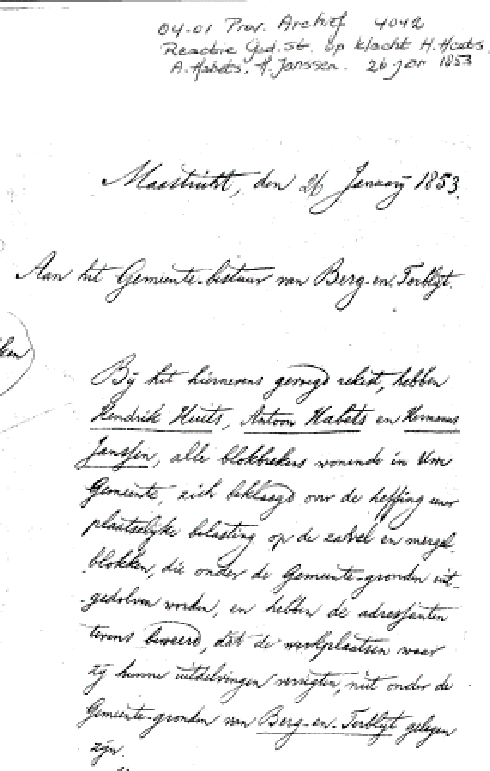 04-01 Prov. Archief 4042
Reactie Ged. St. op klacht H. Hoets,
A. Habets, H. Janssen. 26 jan 1853
Maastricht, den 26 Januarij 1853.
Aan het Gemeente-bestuur van Berg-en-Terblijt.
Bij het hiernevens gevoegd rekest, hebben
Hendrik Huits, Antoon Habets en Hermanus
Janssen, alle blokbrekers wonende in Uwe
Gemeente, zich beklaagd over de heffing eener
plaatselijke belasting op de zavel en mergel-
blokken, die onder de Gemeente-gronden uit-
gedolven worden, en hebben de adressanten
tevens beweerd, dat de werkplaatsen waar
zij hunne uitdelvingen verrigten, niet onder de
Gemeente-gronden van Berg-en-Terblijt gelegen
zijn.